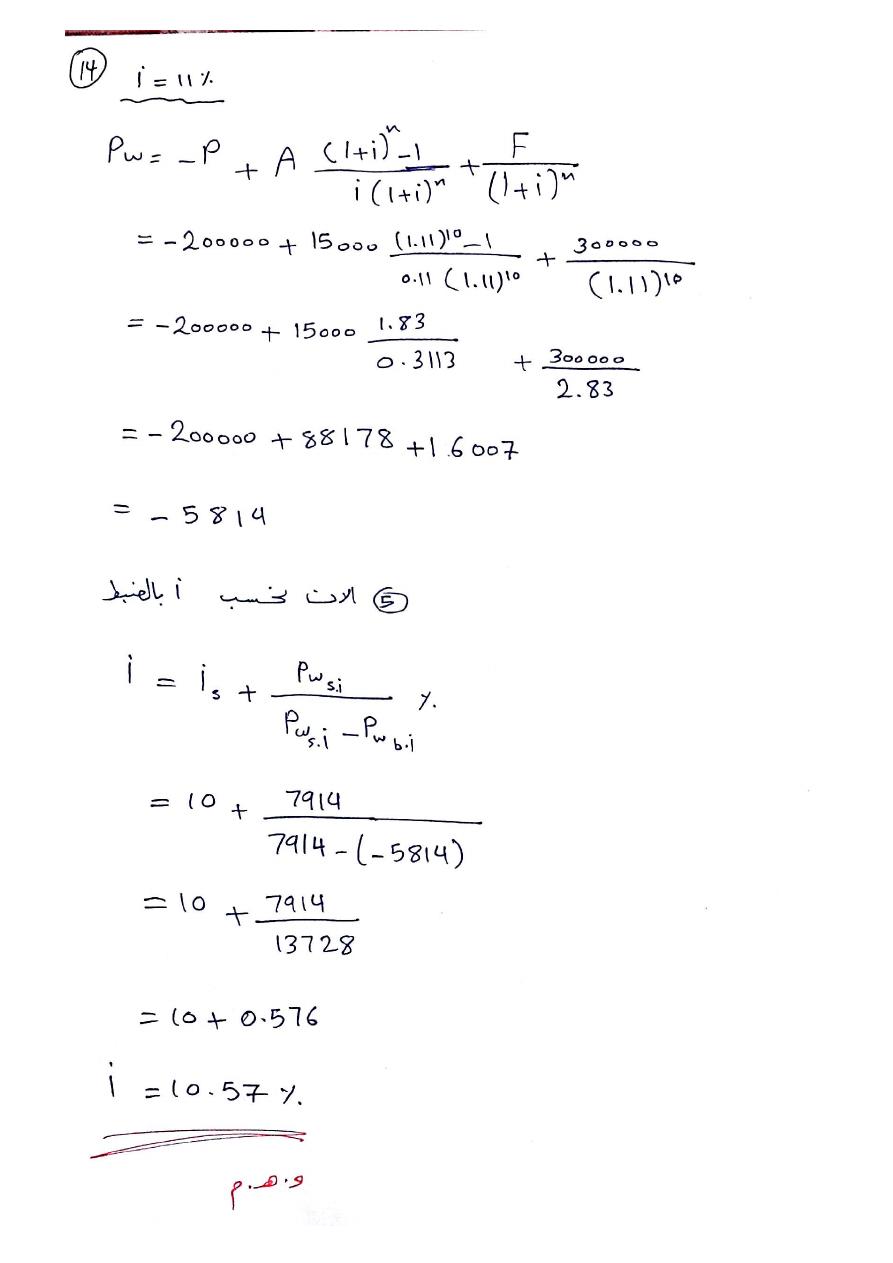 14 i = 11 %
Pw = -P + A ((1+i)^n - 1) / (i(1+i)^n) + F / (1+i)^n
= -200000 + 15000 ((1.11)^10 - 1) / (0.11 (1.11)^10) + 300000 / (1.11)^10
= -200000 + 15000 1.83 / 0.3113 + 300000 / 2.83
= -200000 + 88178 + 1.6007
= -5814
5 الان نحسب i بالضبط
i = i_s + Pw_s.i / (Pw_s.i - Pw_b.i) %
= 10 + 7914 / (7914 - (-5814))
= 10 + 7914 / 13728
= 10 + 0.576
i = 10.57 %
و.هـ.م